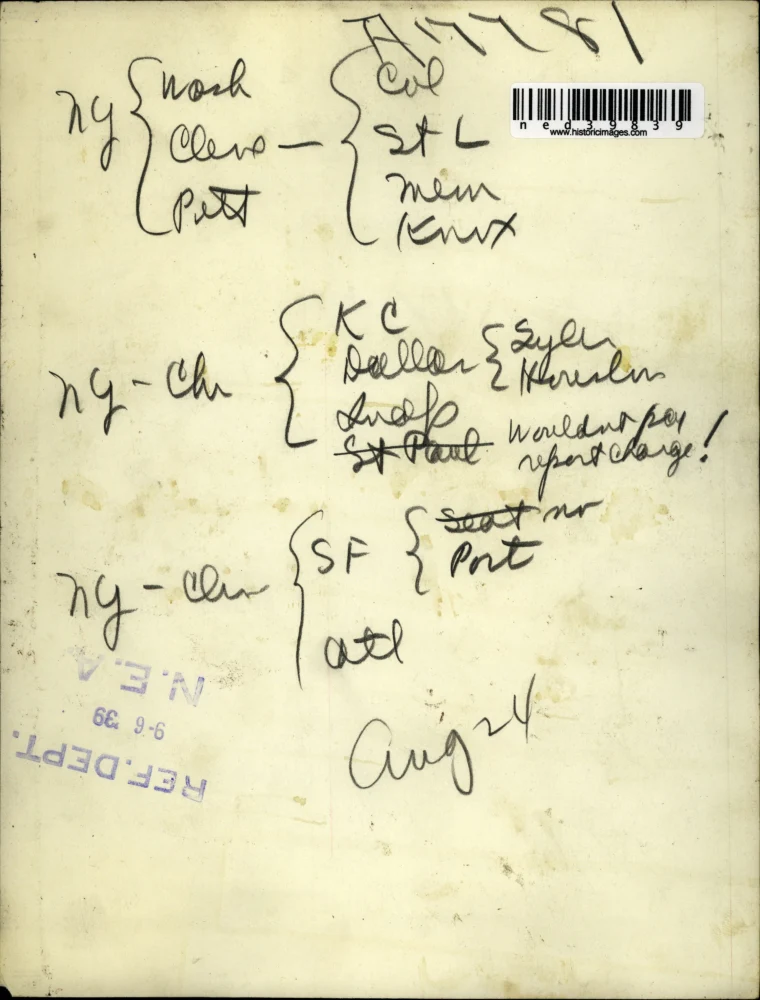 A17781
ned39839
www.historicimages.com
NY { Wash { Col
Cleve — St L
Pitt Mem
Knox
NY - Chi { K C
Dallas { Tyler
Houston
Indp
St Paul Wouldn't pay
report charge!
NY - { SF { Seat no
Port
Atl
N.E.A
9-6 39
REF.DEPT.
Aug 24